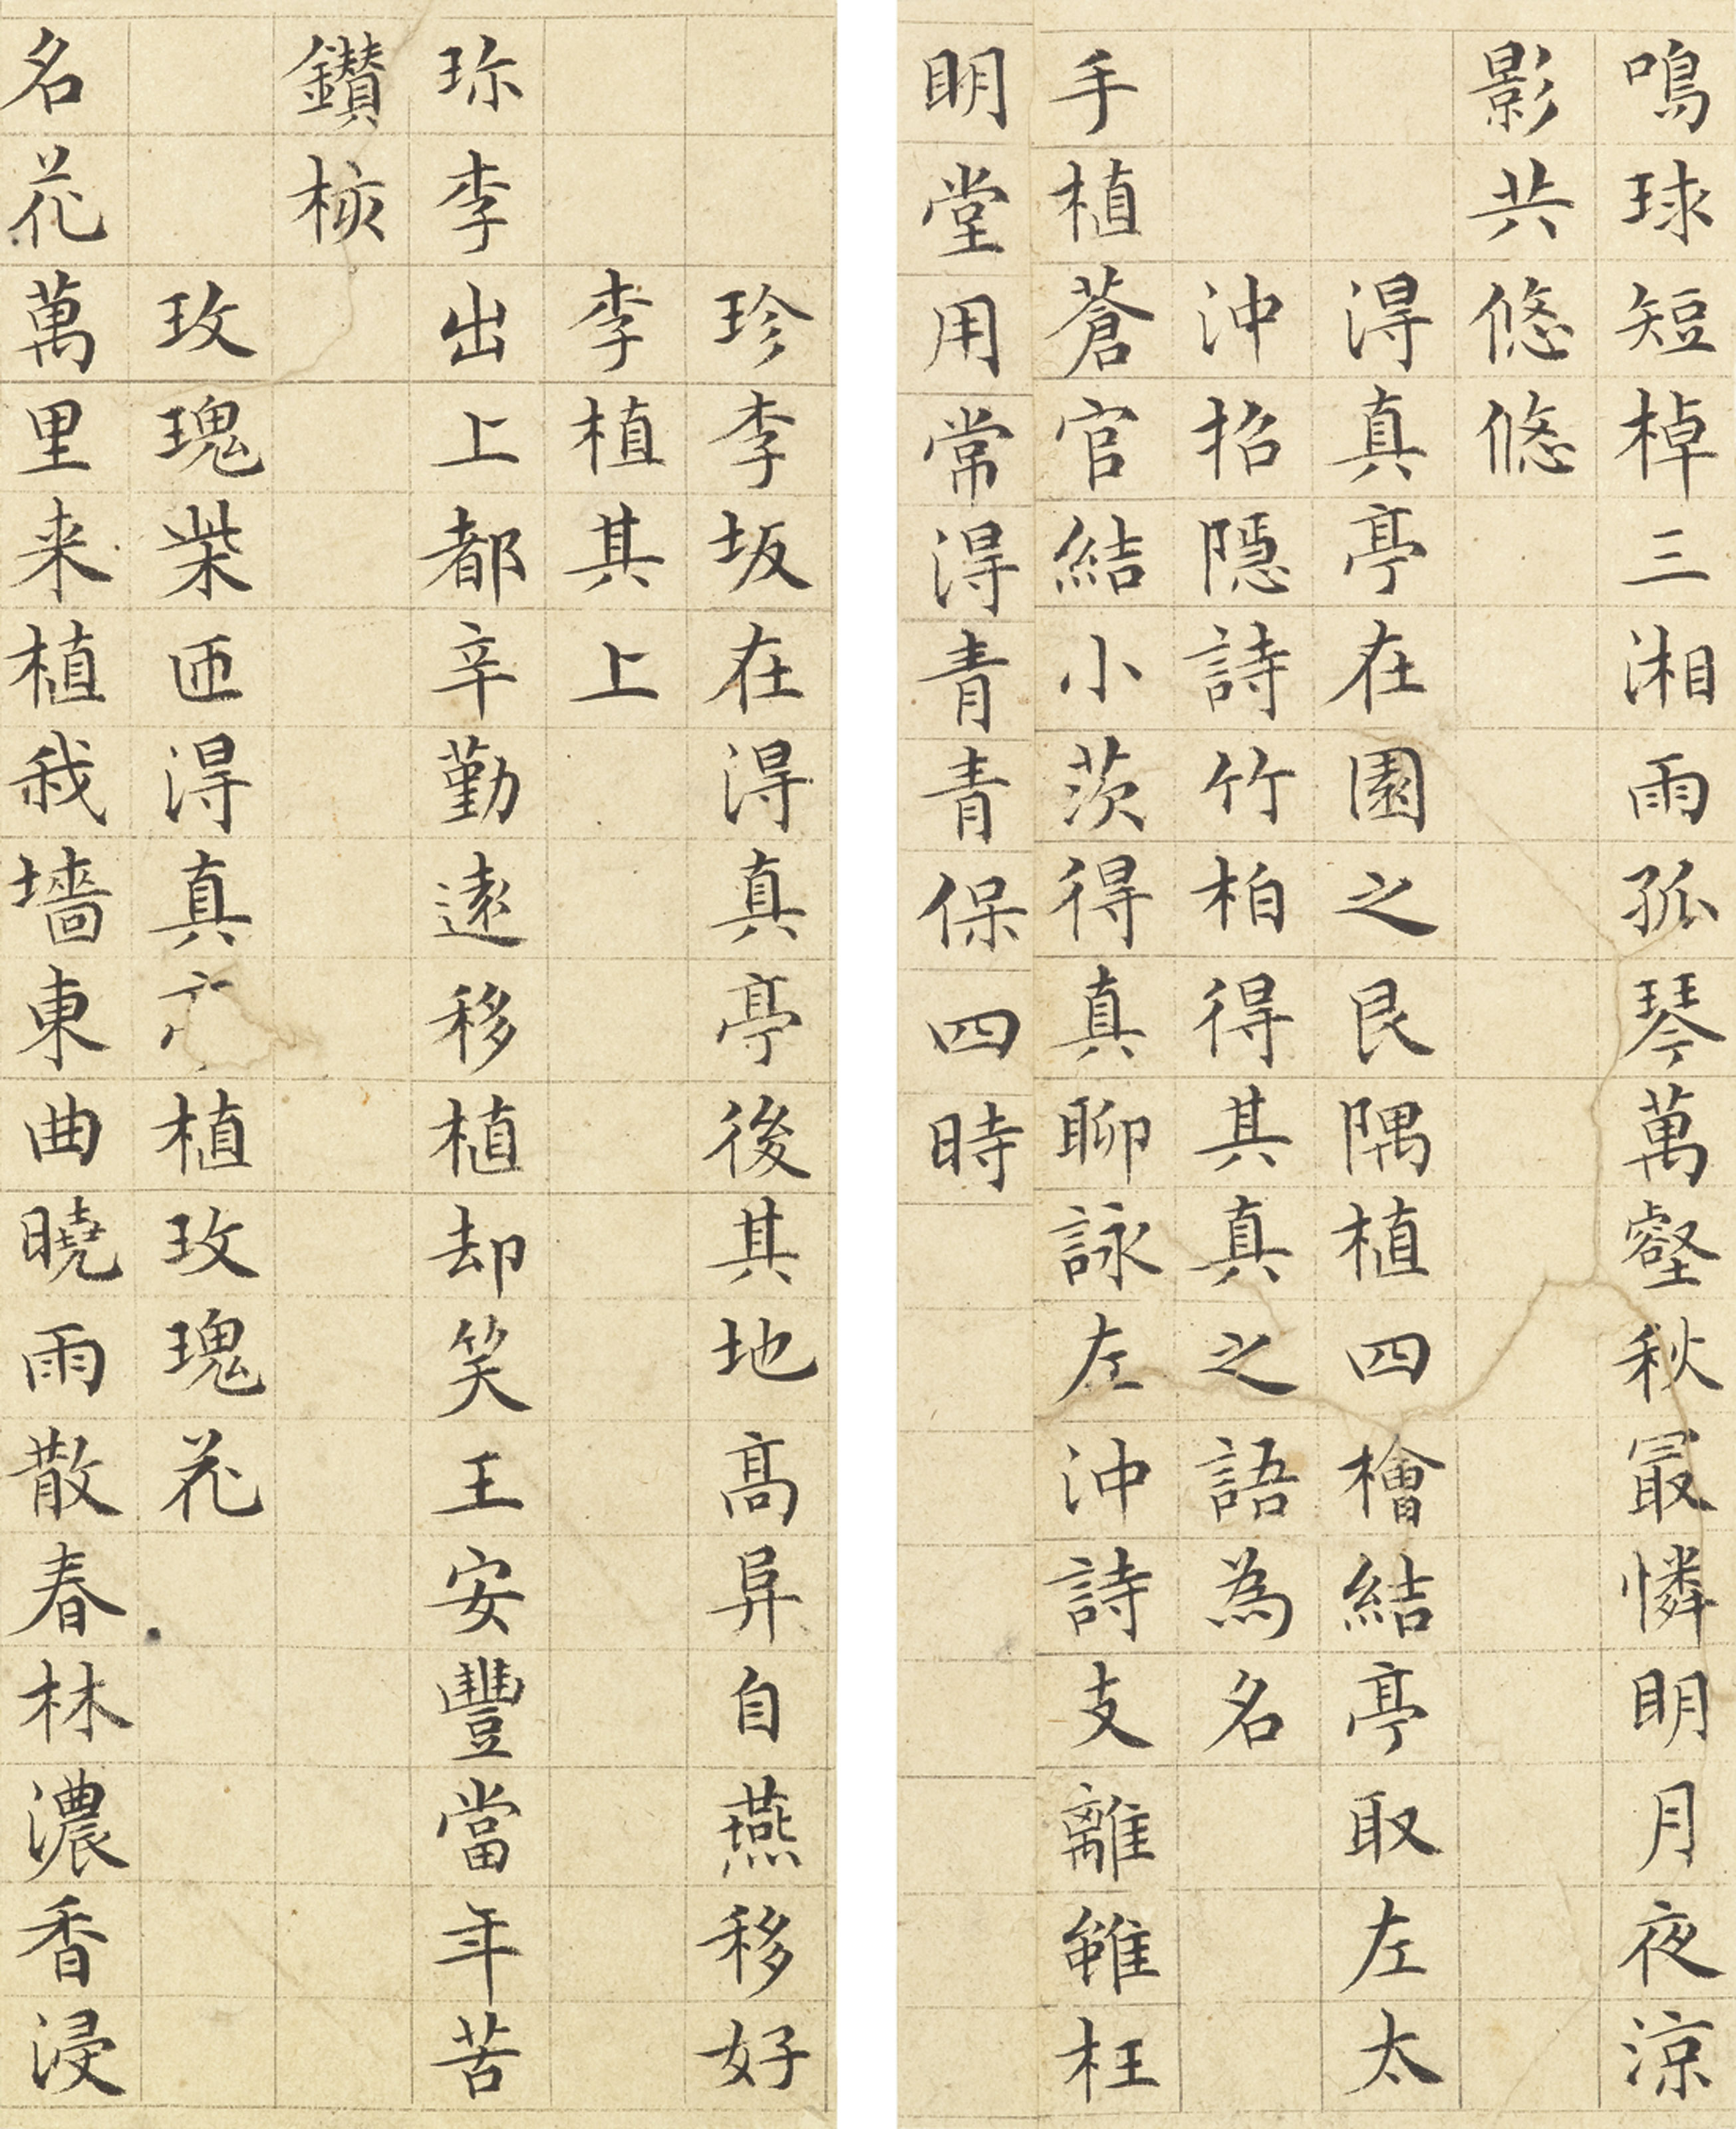 鳴球短棹三湘雨孤琴萬壑秋最憐明月夜涼
影共悠悠
得真亭在園之艮隅植四檜結亭取左太
沖招隱詩竹柏得其真之語為名
手植蒼官結小茨得真聊詠左沖詩支離雖枉
明堂用常得青青保四時
珍李坂在得真亭後其地高阜自燕移好
李植其上
珎李出上都辛勤遠移植却笑王安豐當年苦
鑽核
玫瑰柴匝得真植玫瑰花
名花萬里来植我墻東曲曉雨散春林濃香浸